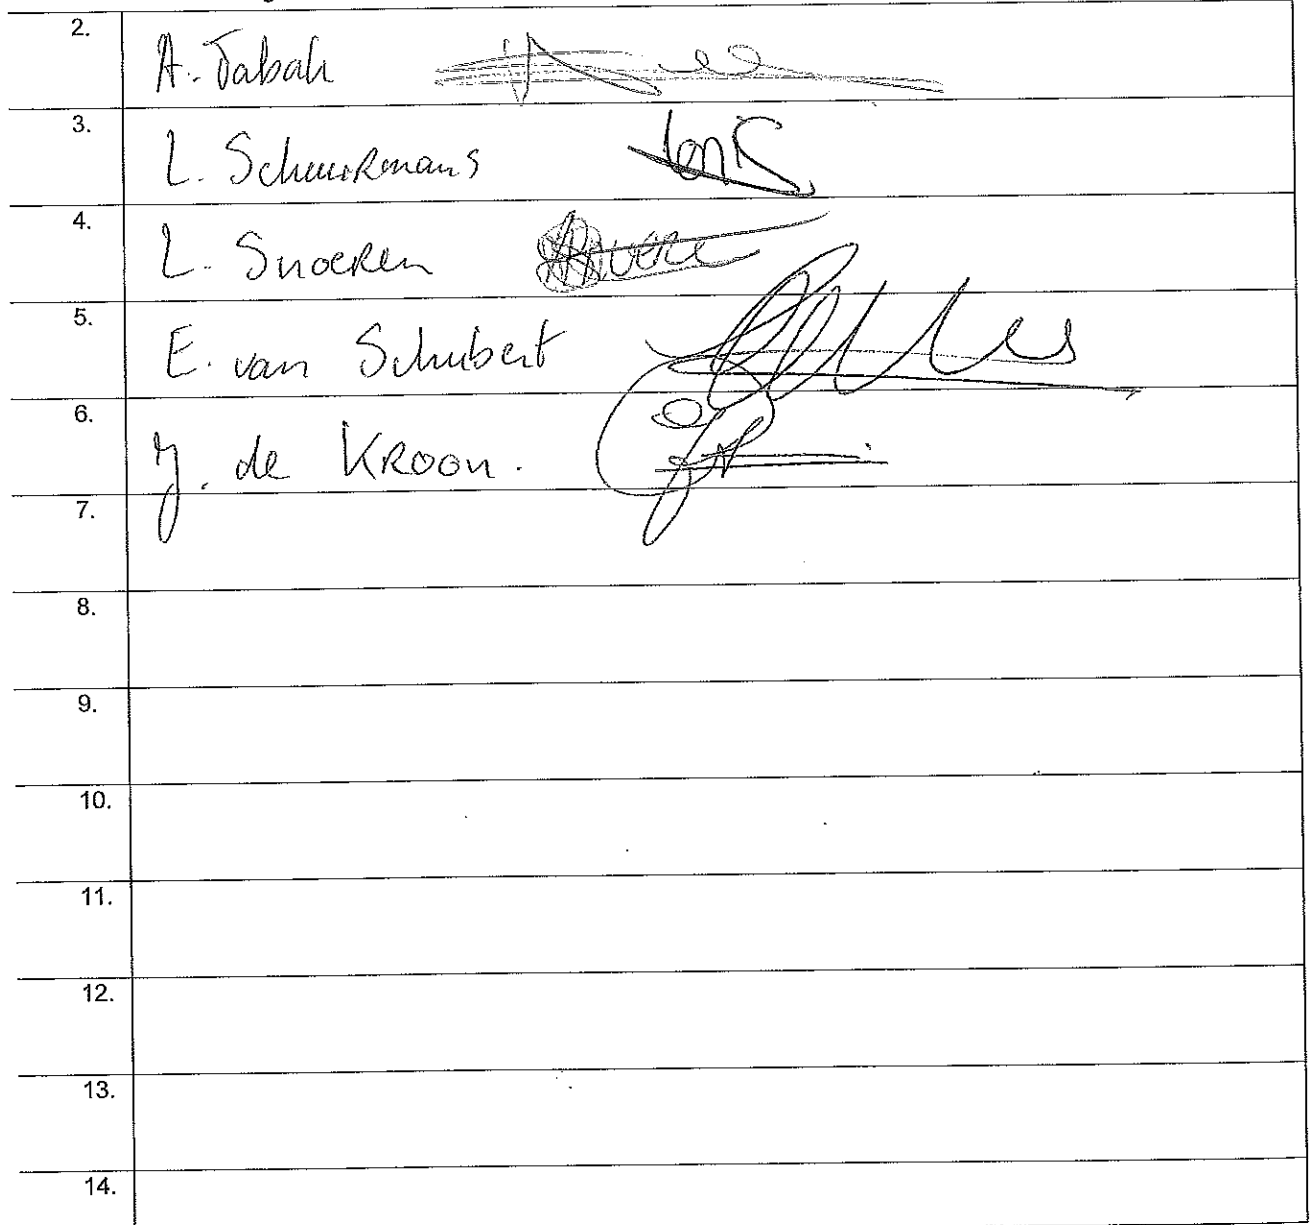 2. A. Tabah
3. L. Scheurmans
4. L. Snoeren
5. E. van Schubert
6. J. de Kroon.
7.
8.
9.
10.
11.
12.
13.
14.